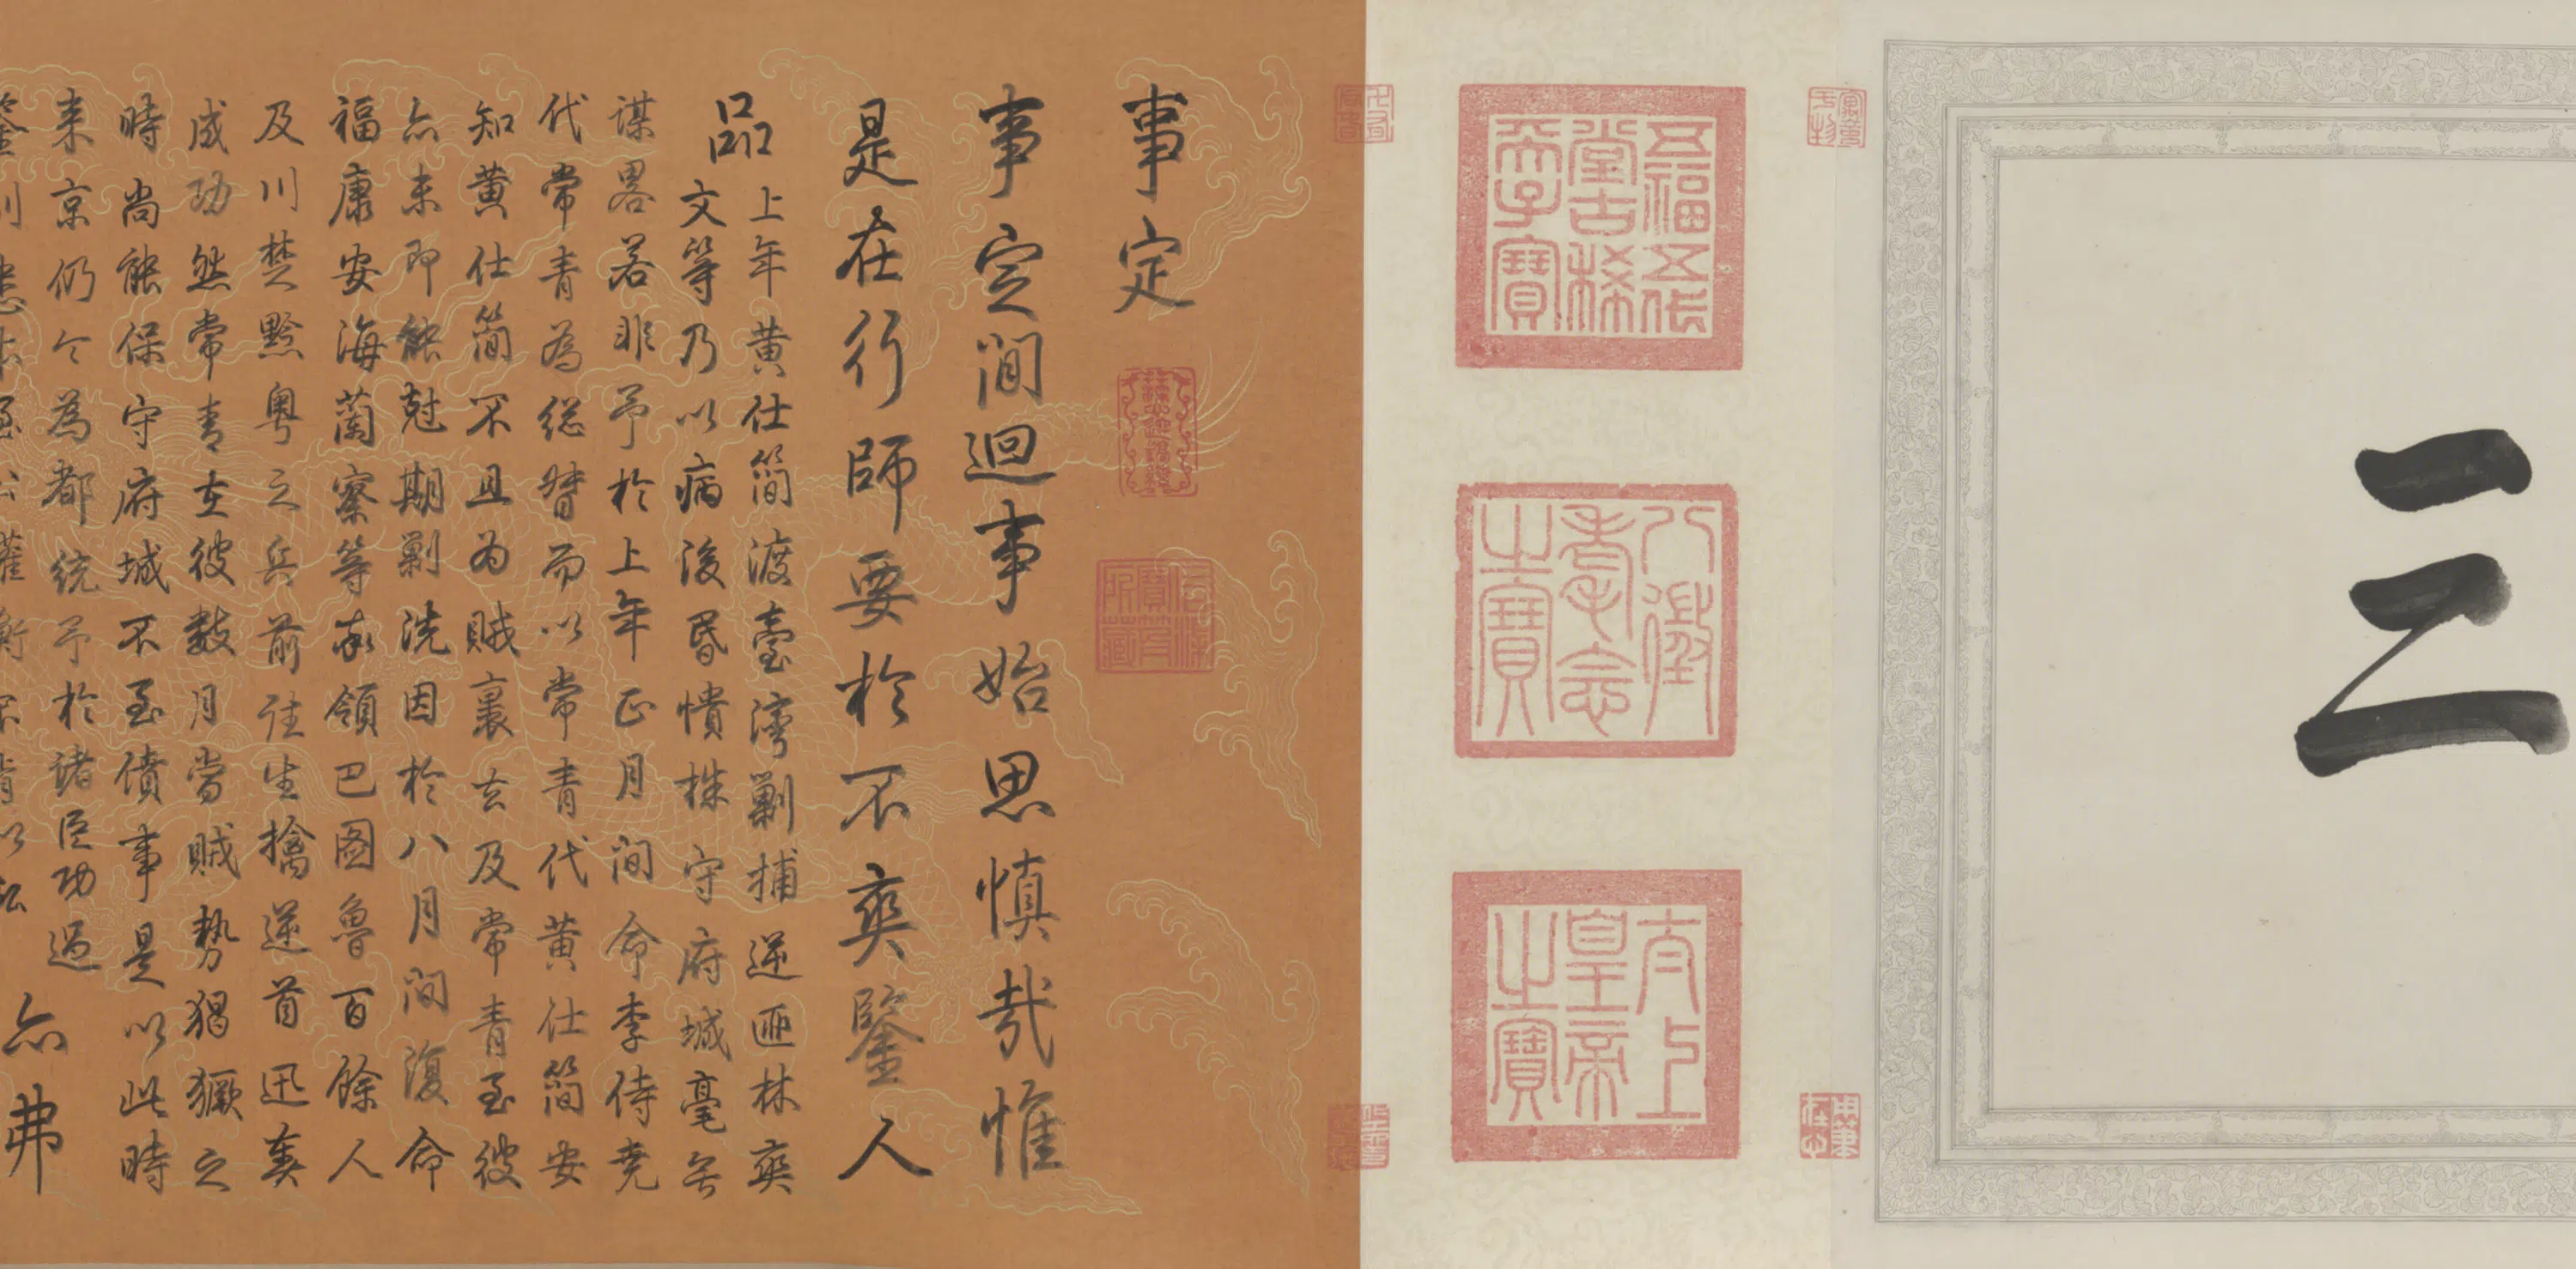 三
五福五代
堂古稀
天子寶
八徵
耄念
之寶
太上
皇帝
之寶
事定
事定閒迴事始思慎哉惟
是在行師要於不爽鑒人
品
上年黄仕簡渡臺灣剿捕逆匪林爽
文等乃以病後昏憒株守府城毫無
謀畧若非予於上年正月間命李侍堯
代常青為総督而以常青代黄仕簡安
知黄仕簡不且為賊裹去及常青至彼
亦未即能尅期剿洗因於八月間復命
福康安海蘭察等率領巴圖魯百餘人
及川楚黔粤之兵前往生擒逆首迅奏
成功然常青在彼數月當賊勢猖獗之
時尚能保守府城不至僨事是以此時
来京仍令為都統予於諸臣功過
亦弗